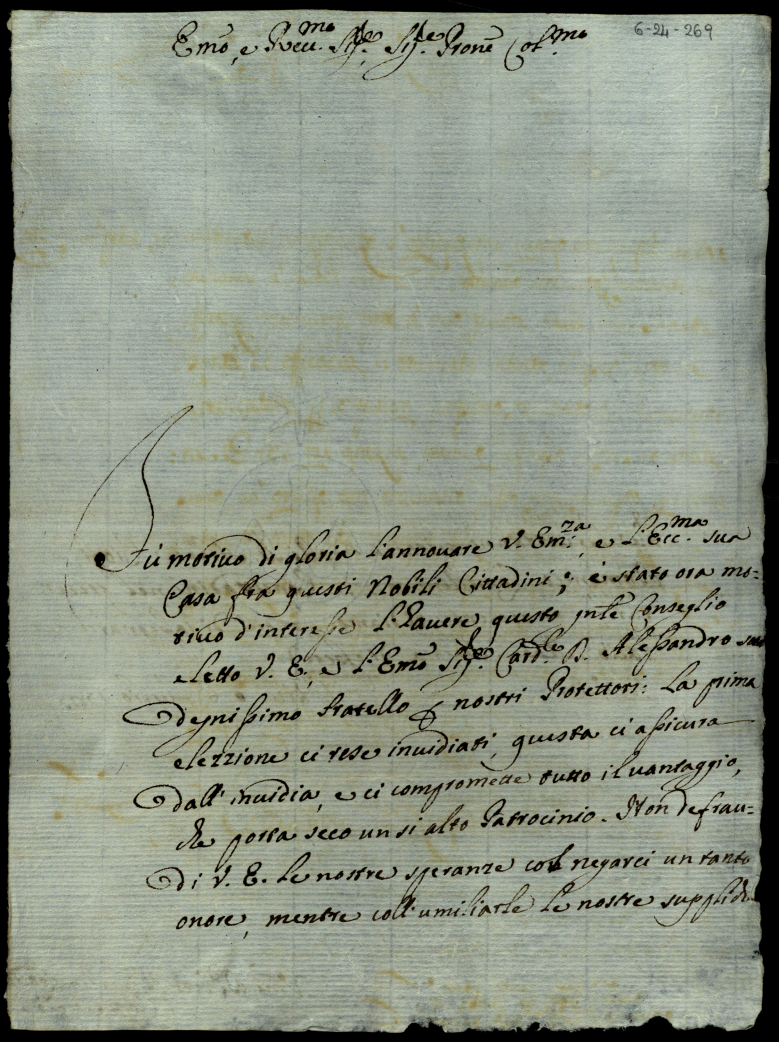 6-24-269
Emo, e Rev.mo Sig.re, Sig.re Prone Col.mo
Fù motivo di gloria l'annovare V. Em.za, e l'Ecc.ma sua
Casa fra questi Nobili Cittadini; è stato ora mo=
tivo d'interesse l'havere questo pnte Conseglio
eletto V. E., e l'Emo Sig.r Card.le D. Alessandro suo
degnissimo fratello p nostri Protettori: La prima
elezzione ci rese invidiati, questa ci assicura
dall'invidia, e ci compromette tutto il vantaggio,
che porta seco un si alto Patrocinio. Non defrau=
di V. E. le nostre speranze col negarci un tanto
onore, mentre coll'umiliarle le nostre suppliche